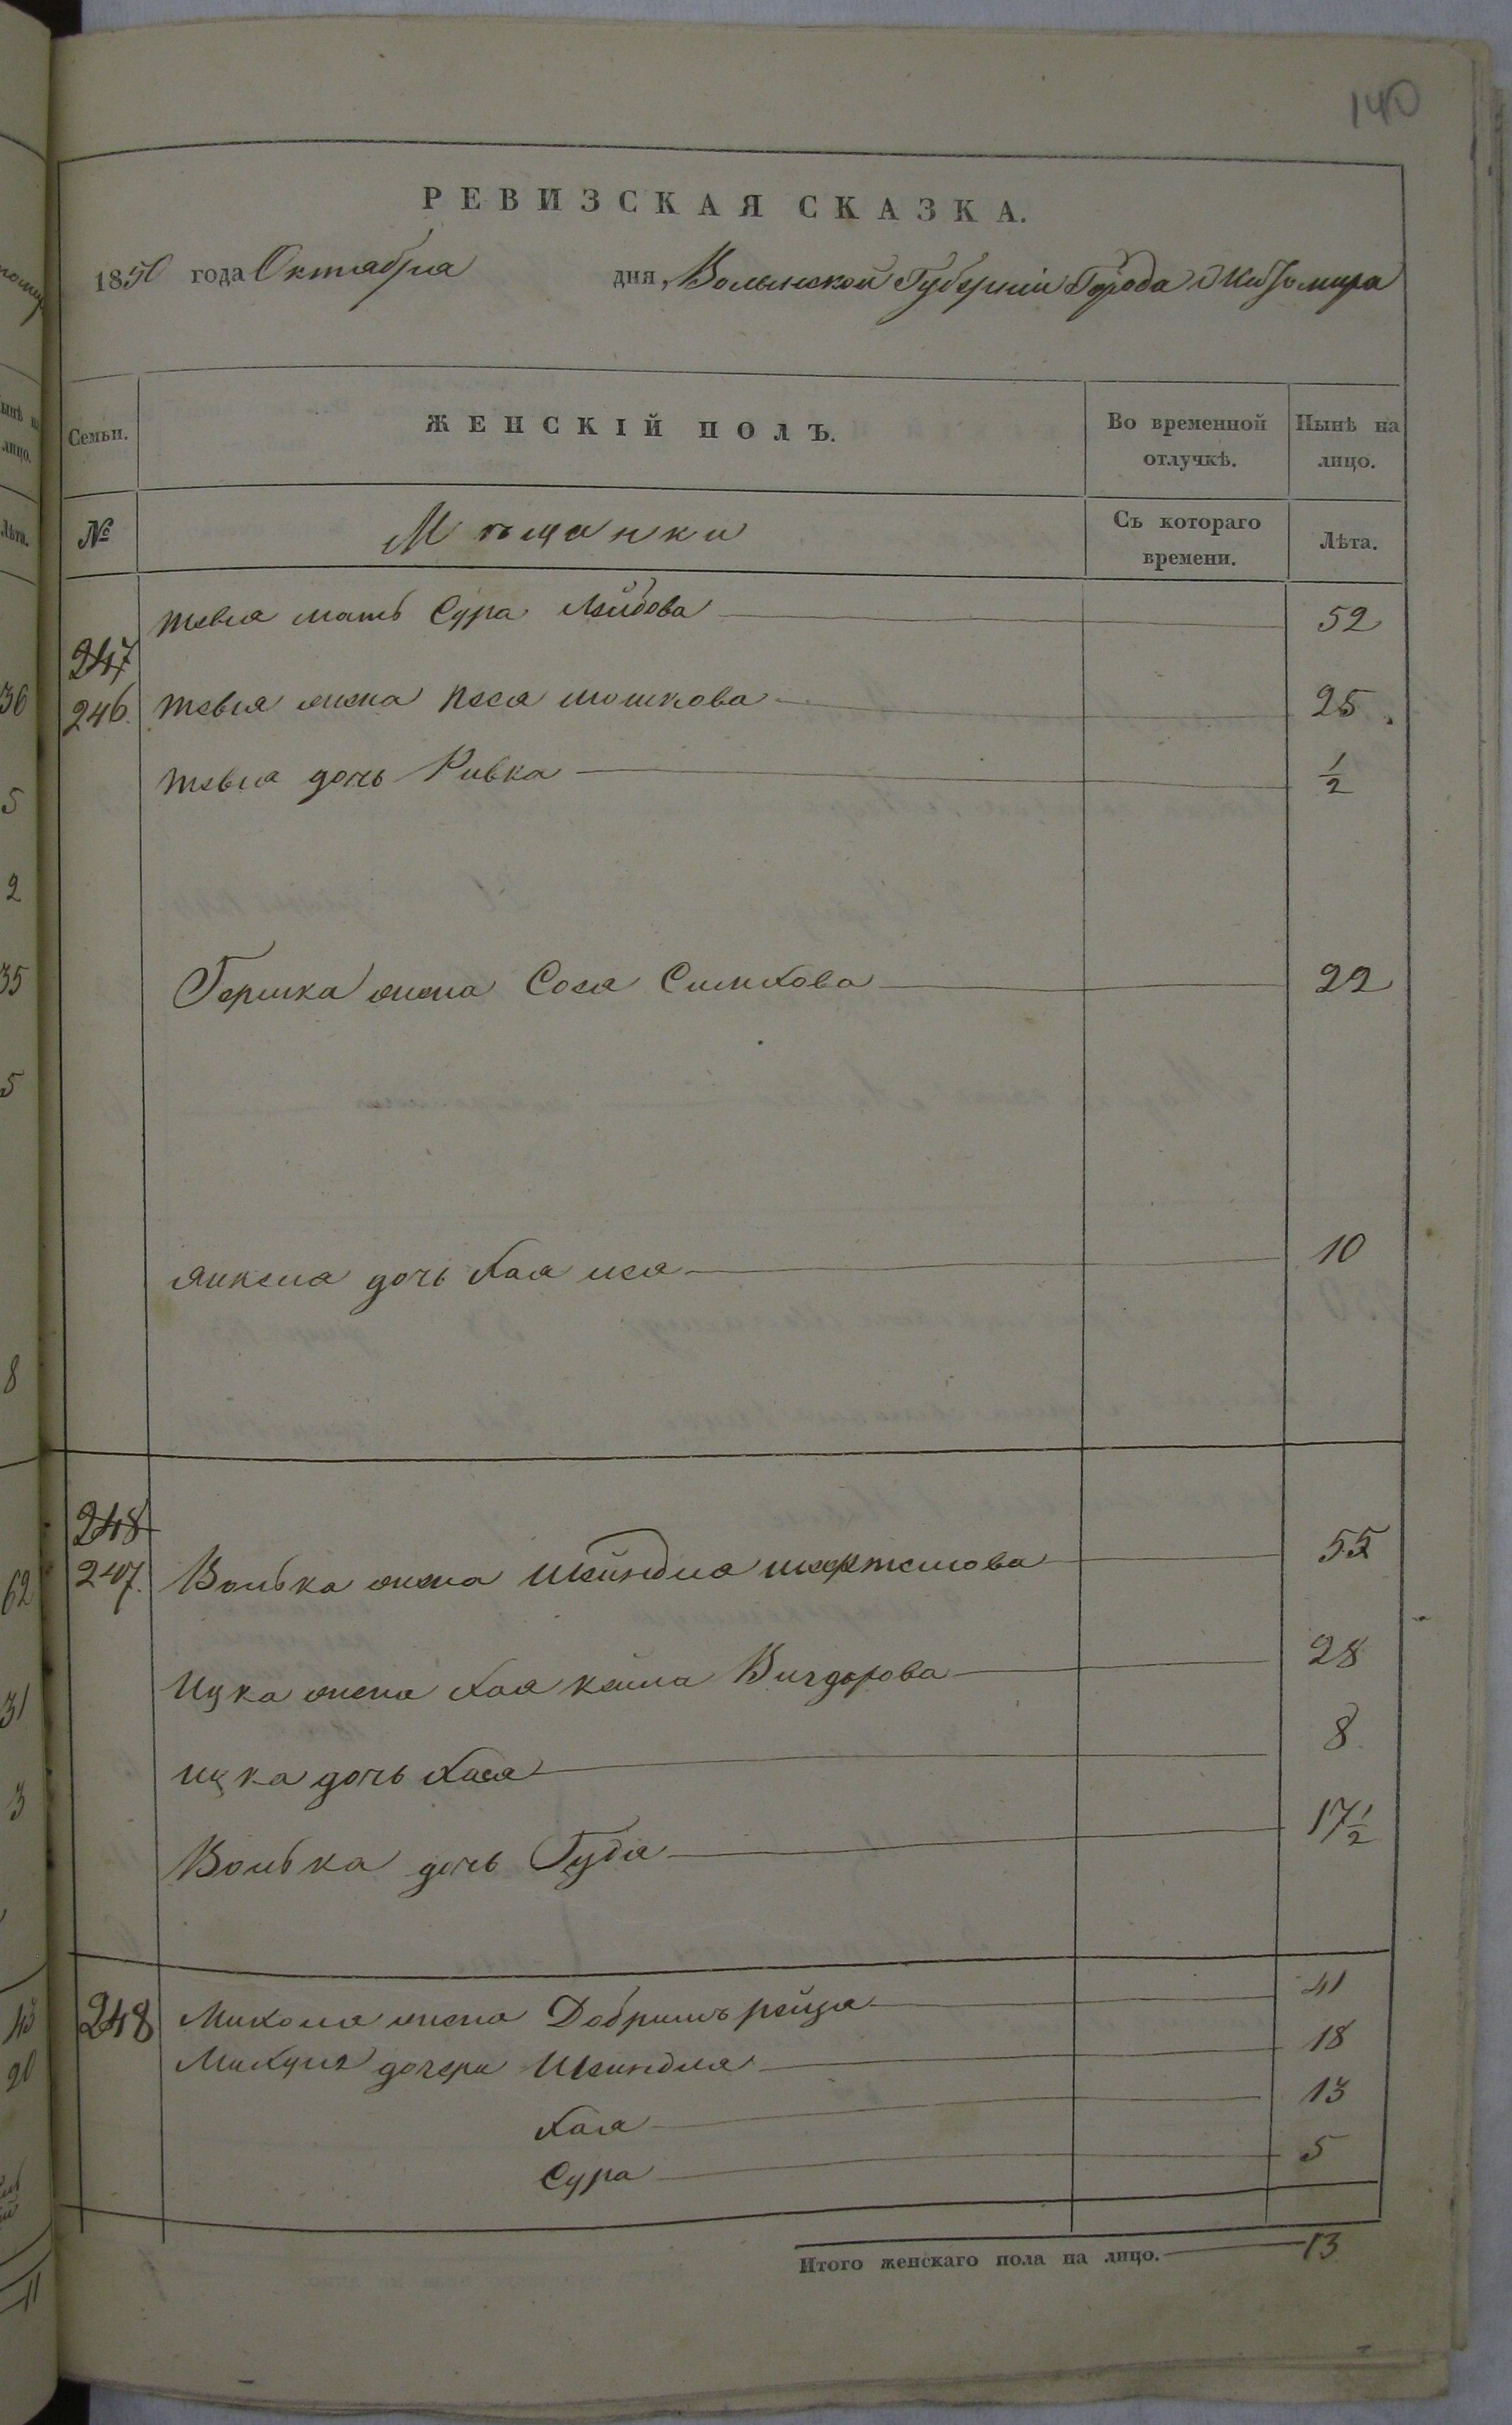 140
РЕВИЗСКАЯ СКАЗКА.
1850 года Октября дня Волынской Губернии Города Житомира
Семьи. ЖЕНСКІЙ ПОЛЪ. Во временной отлучкѣ. Нынѣ на лицо.
№ Мѣщанки Съ котораго времени. Лѣта.
тевеля мать Сура Лейбова 52
247
246. тевеля жена песя мошкова 25
тевеля дочь Ривка 1/2
Гершка жена Сося Симхова 22
янкеля дочь хая 10
248
247. Волька жена шейндля 55
Ицка жена хая Вигдорова 28
ицка дочь хася 8
Волька дочь Гудя 17 1/2
248 Михеля жена Добришъ рейза 41
Михуля дочери Шейндля 18
хая 13
Сура 5
Итого женскаго пола на лицо. 13